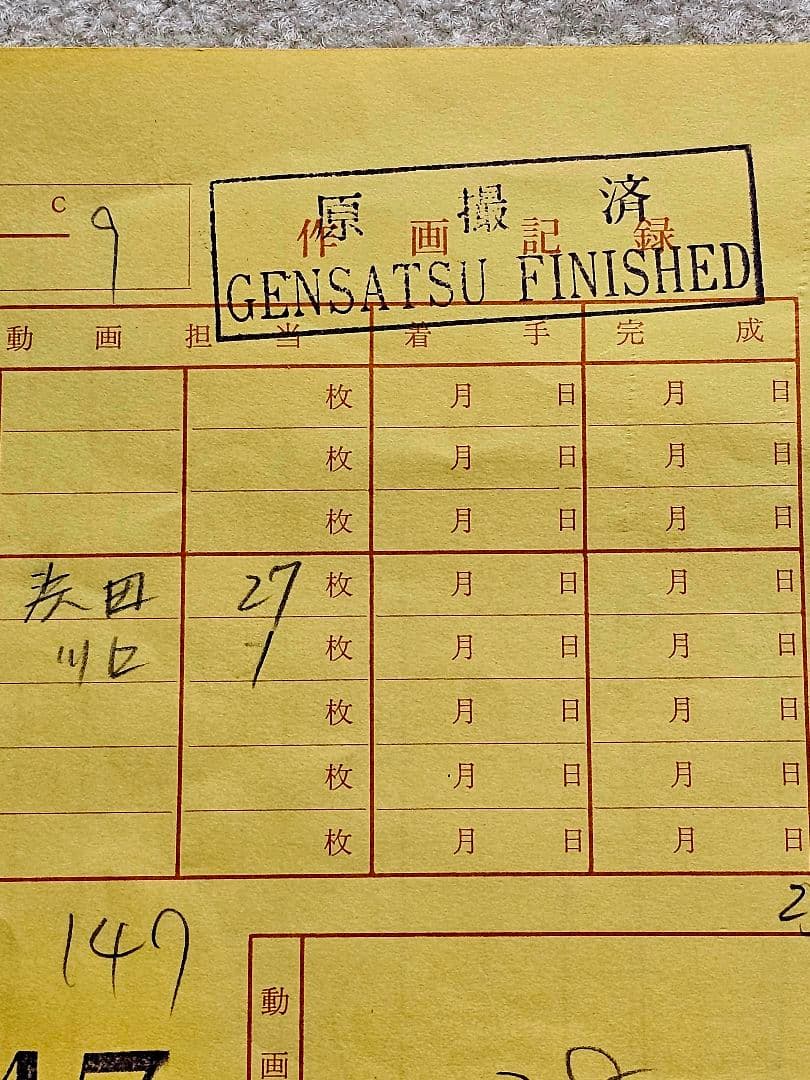 C 9
原撮済
作画記録
GENSATSU FINISHED
動画担当 着手 完成
枚 月 日 月 日
枚 月 日 月 日
枚 月 日 月 日
田 27 枚 月 日 月 日
川口 1 枚 月 日 月 日
枚 月 日 月 日
枚 月 日 月 日
枚 月 日 月 日
147
動画